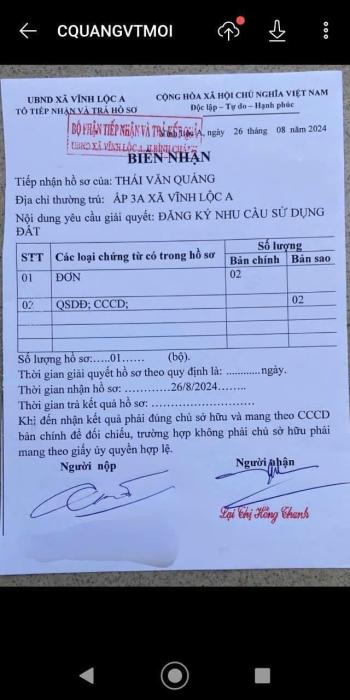 CQUANGVTMOI
UBND XÃ VĨNH LỘC A
TỔ TIẾP NHẬN VÀ TRẢ HỒ SƠ
CỘNG HÒA XÃ HỘI CHỦ NGHĨA VIỆT NAM
Độc lập - Tự do - Hạnh phúc
BỘ PHẬN TIẾP NHẬN VÀ TRẢ KẾT QUẢ
UBND XÃ VĨNH LỘC A, H.BÌNH CHÁNH
A, ngày 26 tháng 08 năm 2024
BIÊN NHẬN
Tiếp nhận hồ sơ của: THÁI VĂN QUẢNG
Địa chỉ thường trú: ẤP 3A XÃ VĨNH LỘC A
Nội dung yêu cầu giải quyết: ĐĂNG KÝ NHU CẦU SỬ DỤNG
ĐẤT
STT Các loại chứng từ có trong hồ sơ Số lượng
Bản chính Bản sao
01 ĐƠN 02
02 QSDĐ; CCCD; 02
Số lượng hồ sơ:.....01...... (bộ).
Thời gian giải quyết hồ sơ theo quy định là: ............ngày.
Thời gian nhận hồ sơ: ............26/8/2024........
Thời gian trả kết quả hồ sơ: ...........................
Khi đến nhận kết quả phải đúng chủ sở hữu và mang theo CCCD
bản chính để đối chiếu, trường hợp không phải chủ sở hữu phải
mang theo giấy ủy quyền hợp lệ.
Người nộp Người nhận
Lại Thị Hồng Thanh